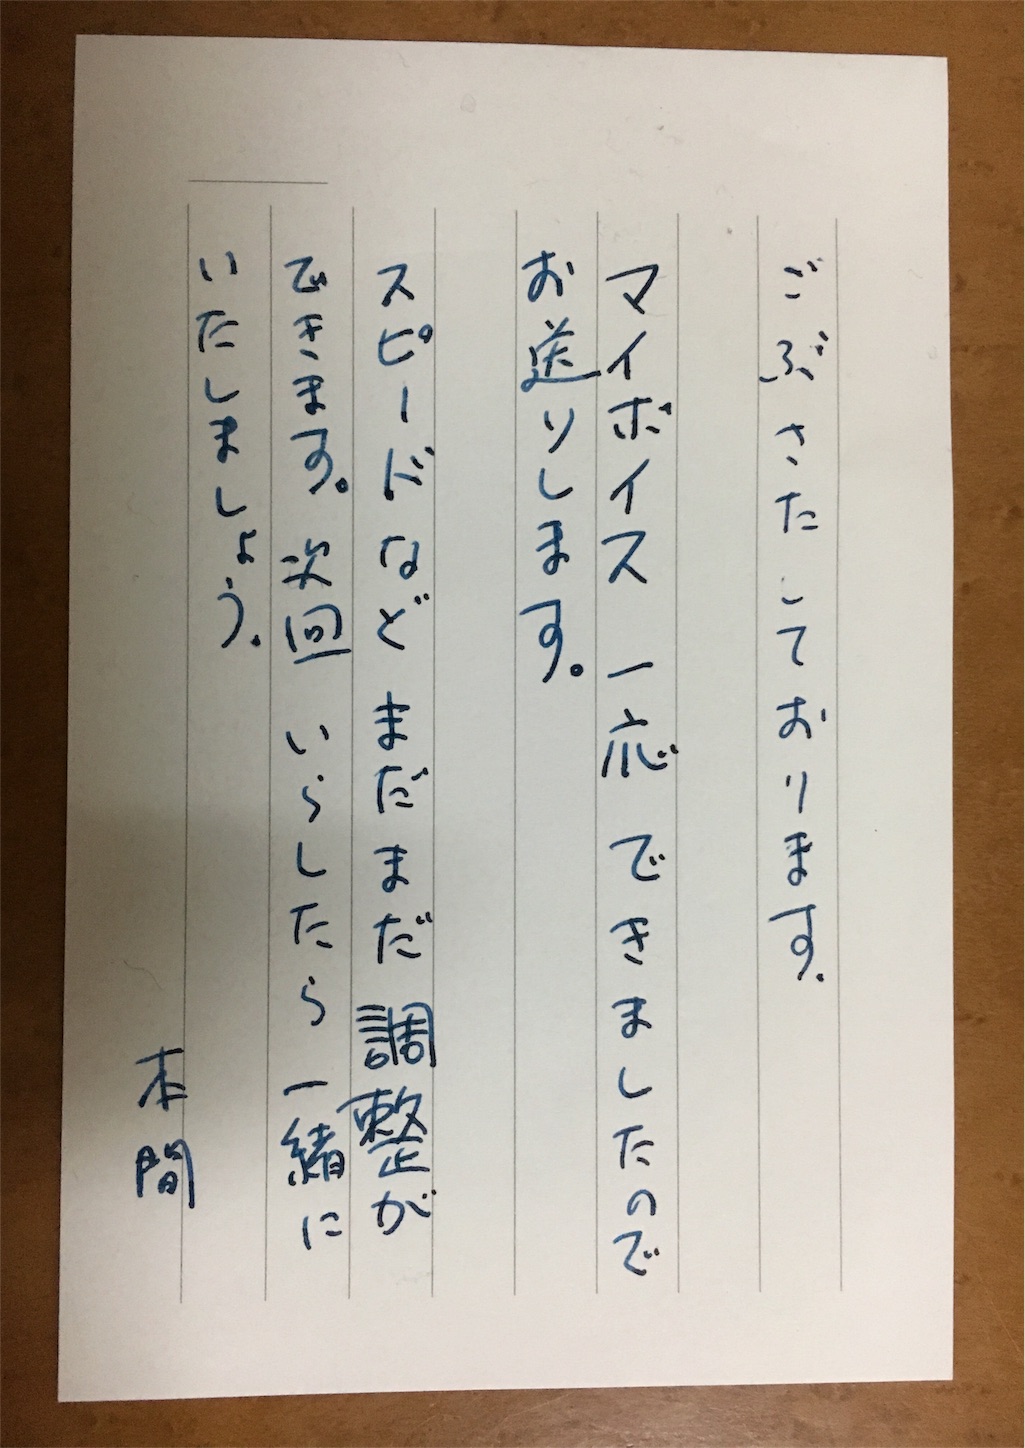 ごぶさたしております。
マイボイス 一応 できましたので
お送りします。
スピードなど まだまだ 調整が
できます。次回 いらしたら 一緒に
いたしましょう。
本間